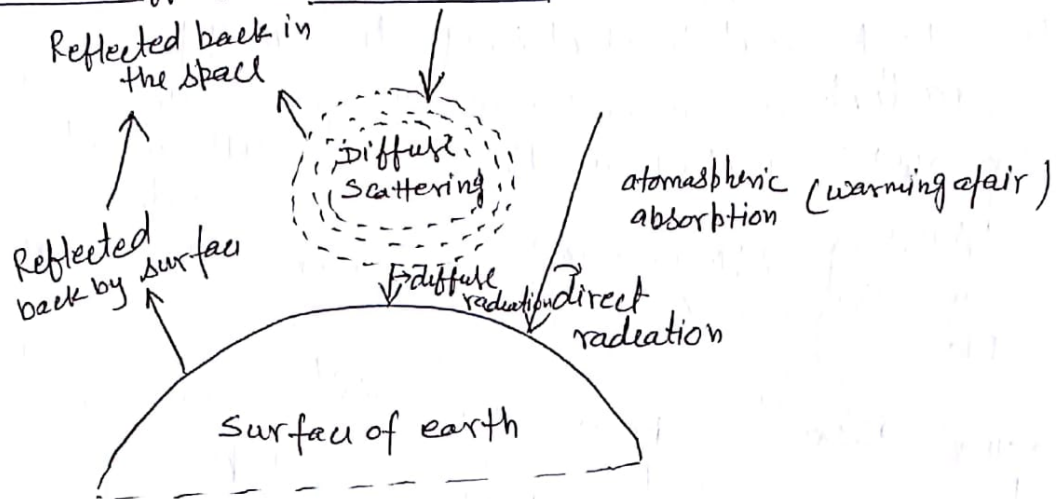 Reflected back in
the space
Diffuse
Scattering
atomaspheric (warming of air)
absorption
Reflected
back by surface
diffuse
radiation
direct
radeation
Surface of earth